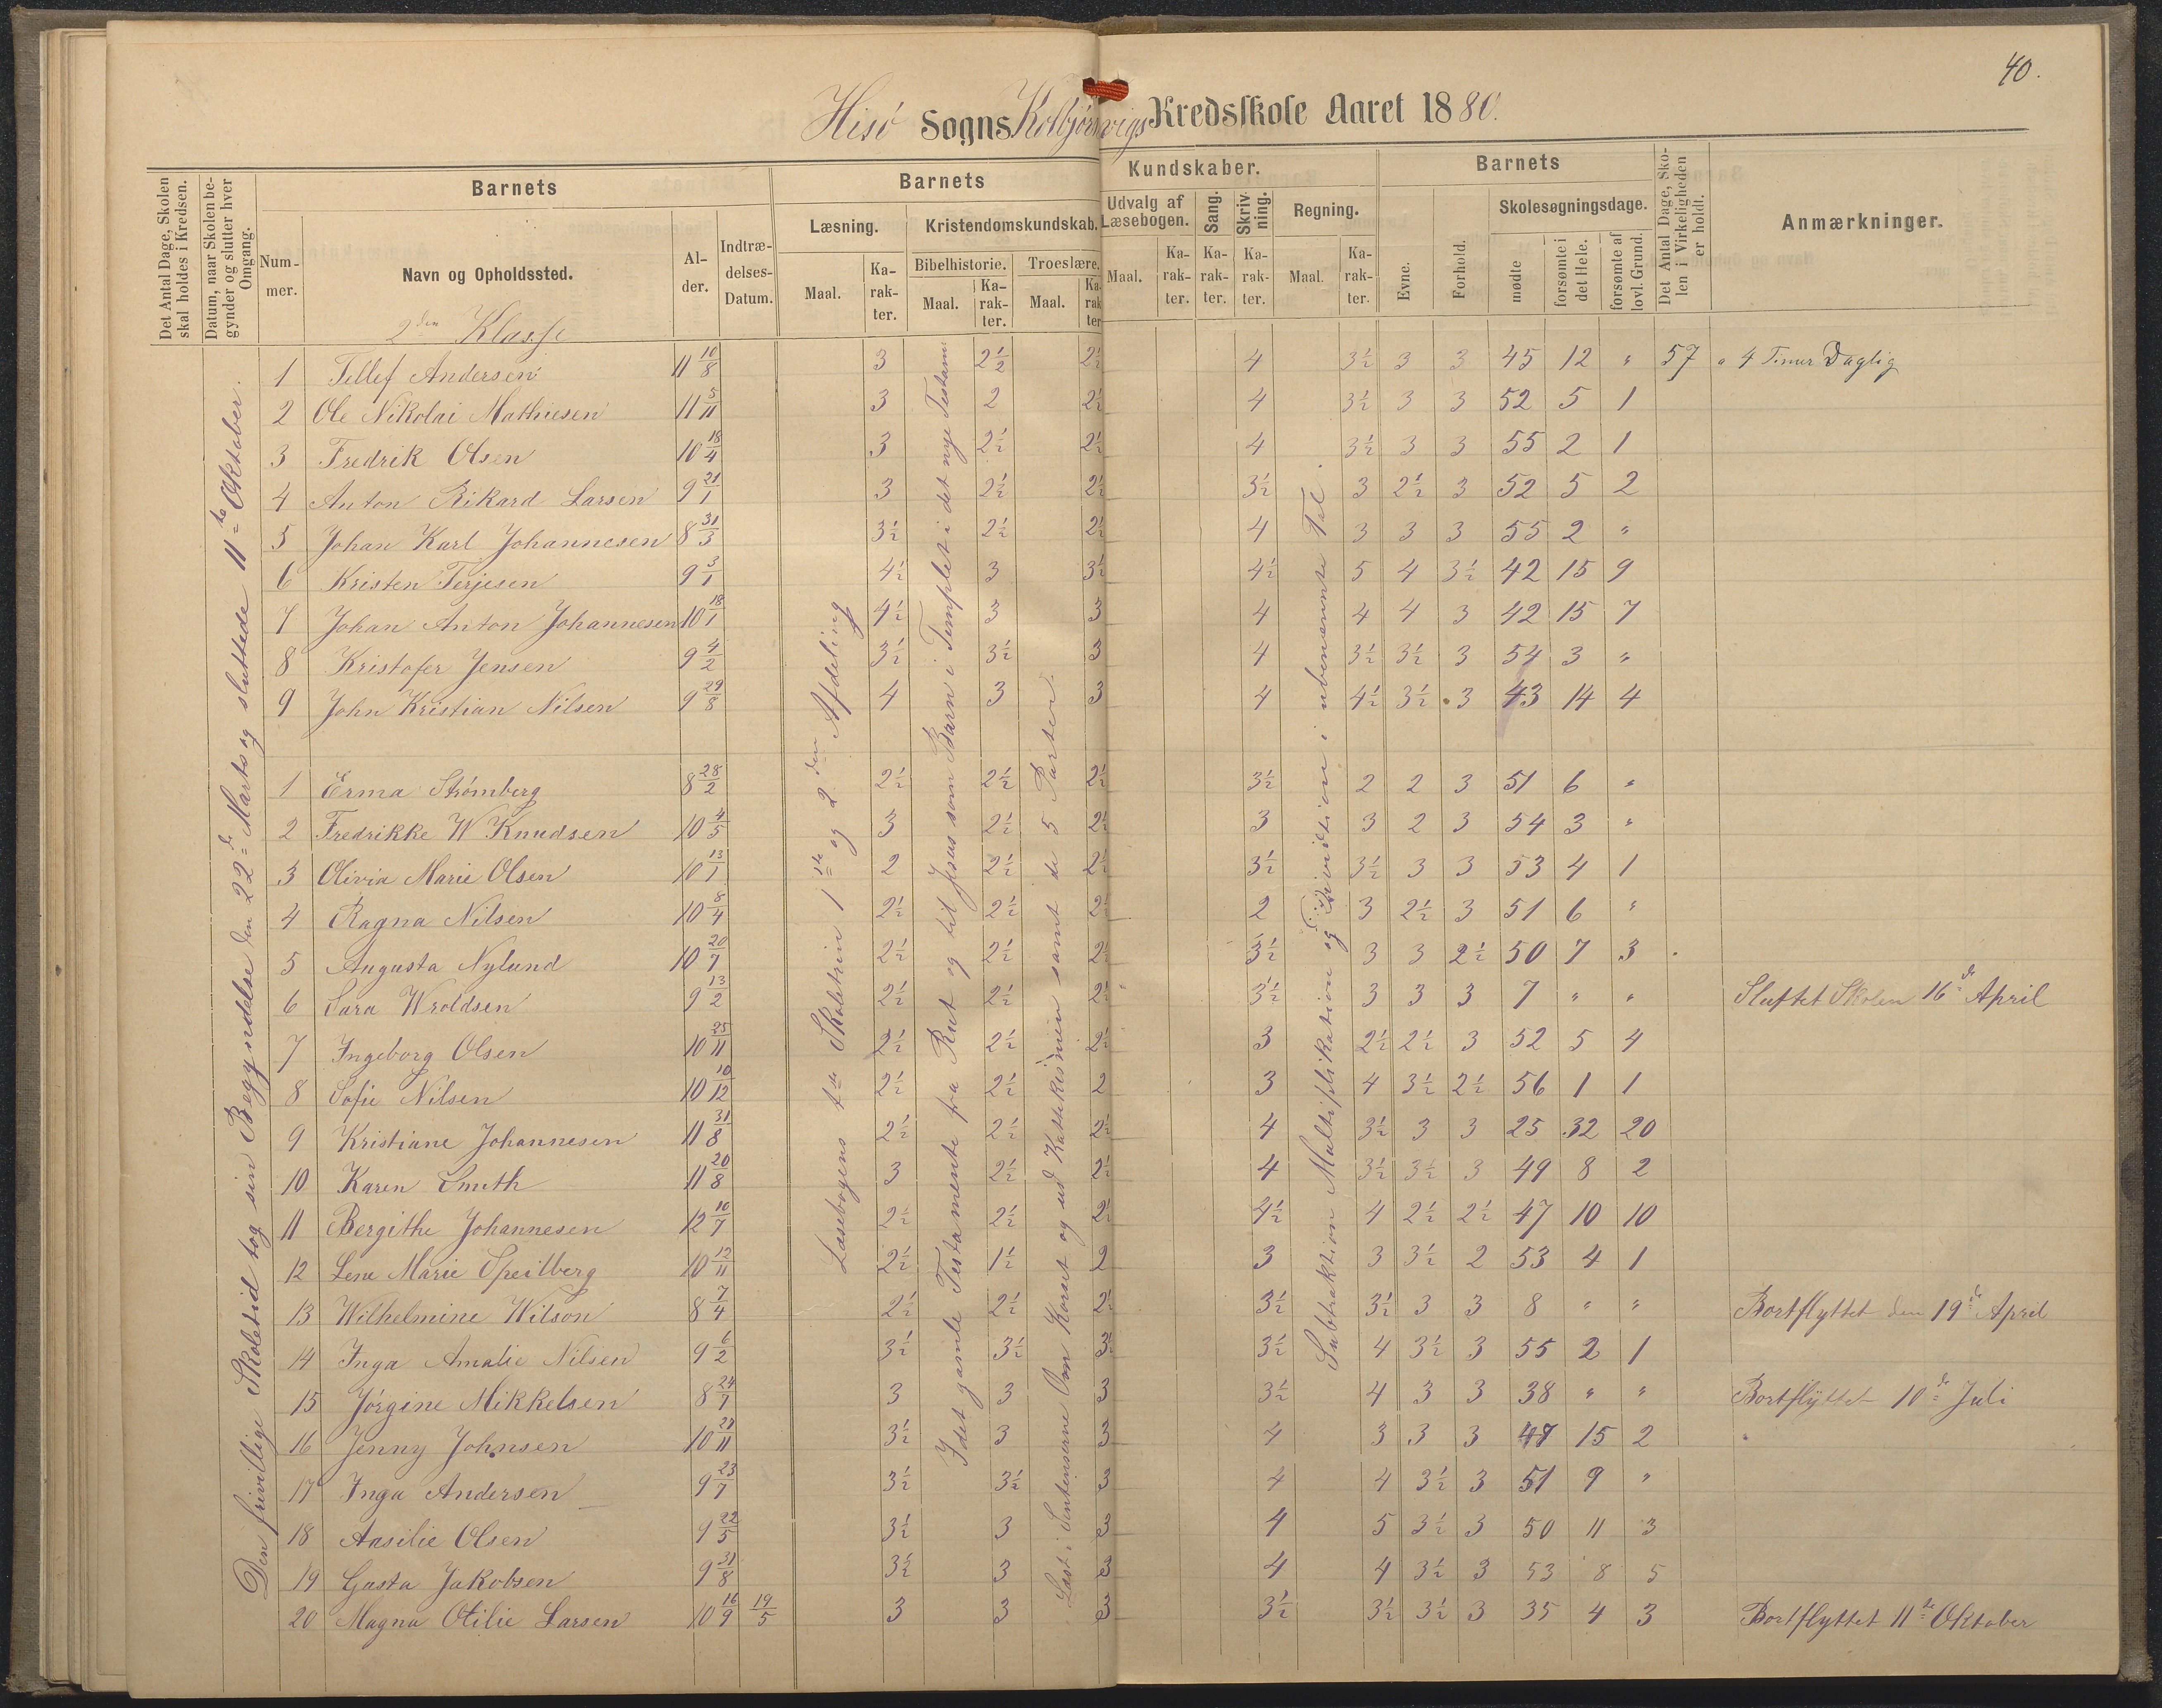 40.
Hisø Sogns Kolbjørnsvigs Kredsskole Aaret 1880.
Det Antal Dage, Skolen skal holdes i Kredsen.
Datum, naar Skolen begynder og slutter hver Omgang.
Barnets
Nummer.
Navn og Opholdssted.
Alder.
Indtrædelses-Datum.
Barnets Kundskaber.
Læsning.
Maal.
Karakter.
Kristendomskundskab.
Bibelhistorie.
Maal.
Karakter.
Troeslære.
Maal.
Karakter
Udvalg af Læsebogen.
Maal.
Karakter.
Sang.
Karakter.
Skrivning.
Karakter.
Regning.
Maal.
Karakter.
Barnets
Evne.
Forhold.
Skolesøgningsdage.
mødte
forsømte i det Hele.
forsømte af lovl. Grund.
Det Antal Dage, Skolen i Virkeligheden er holdt.
Anmærkninger.
2den Klasse
Den frivillige Skoletid tog sin Begyndelse den 22de Marts og sluttede 11te Oktober.
Læsebogens 1ste Skoletrin 1ste og 2den Afdeling
I det gamle Testamente fra Rut og til Jesus som Barn i Templet i det nye Testam
Læst i Sentenserne Om Korset og ud Kattekismen samt de 5 Parter.
Subtraktion Multiplikation og Dividtion i ubenævnte Tal.
1 Tellef Andersen 11 10/8 3 2½ 2½ 4 3½ 3 3 45 12 " 57 a 4 Timer Daglig
2 Ole Nikolai Mathiesen 11 5/11 3 2 2½ 4 3½ 3 3 52 5 1
3 Fredrik Olsen 10 18/4 3 2½ 2½ 4 3½ 3 3 55 2 1
4 Anton Rikard Larsen 9 21/1 3 2½ 2½ 3½ 3 2½ 3 52 5 2
5 Johan Karl Johannesen 8 31/3 3½ 2½ 2½ 4 3 3 3 55 2 "
6 Kristen Terjesen 9 3/1 4½ 3 3½ 4½ 5 4 3½ 42 15 9
7 Johan Anton Johannesen 10 18/1 4½ 3 3 4 4 4 3 42 15 7
8 Kristofer Jensen 9 4/2 3½ 3½ 3 4 3½ 3½ 3 54 3 "
9 John Kristian Nilsen 9 29/8 4 3 3 4 4½ 3½ 3 43 14 4
1 Erma Strømberg 8 28/2 2½ 2½ 2½ 3½ 2 2 3 51 6 "
2 Fredrikke W Knudsen 10 4/5 3 2½ 2½ 3 3 2 3 54 3 "
3 Olivia Marie Olsen 10 13/1 2 2½ 2½ 3½ 3½ 3 3 53 4 1
4 Ragna Nilsen 10 8/4 2½ 2½ 2½ 2 3 2½ 3 51 6 "
5 Augusta Nylund 10 20/7 2½ 2½ 2½ 3½ 3 3 2½ 50 7 3
6 Sara Wroldsen 9 13/2 2½ 2½ 2½ 3½ 3 3 3 7 " " Sluttet Skolen 16de April
7 Ingeborg Olsen 10 25/11 2½ 2½ 2½ 3 2½ 2½ 3 52 5 4
8 Sofie Nilsen 10 10/12 2½ 2½ 2 3 4 3½ 2½ 56 1 1
9 Kristiane Johannesen 11 31/8 2½ 2½ 2½ 4 3½ 3 3 25 32 20
10 Karen Smith 11 20/8 3 2½ 2½ 4 3½ 3½ 3 49 8 2
11 Bergithe Johannesen 12 10/7 2½ 2½ 2½ 4½ 4 2½ 2½ 47 10 10
12 Lene Marie Speilberg 10 12/11 2½ 1½ 2 3 3 3½ 2 53 4 1
13 Wilhelmine Wilson 8 7/4 2½ 2½ 2½ 3½ 3½ 3 3 8 " " Bortflyttet den 19de April
14 Inga Amalie Nilsen 9 6/2 3½ 3½ 3½ 3½ 4 3½ 3 55 2 1
15 Jørgine Mikkelsen 8 24/7 3 3 3 3½ 4 3 3 38 " " Bortflyttet 10de Juli
16 Jenny Johnsen 10 21/11 3½ 3 3 4 3 3 3 47 15 2
17 Inga Andersen 9 23/7 3½ 3½ 3 4 4 3½ 3 51 9 "
18 Aasilie Olsen 9 22/5 3½ 3 3 4 5 3½ 3 50 11 3
19 Gusta Jakobsen 9 31/8 3½ 3 3 4 4 3½ 3 53 8 5
20 Magna Otilie Larsen 10 16/9 19/5 3 3 3 3½ 3½ 3½ 3 35 4 3 Bortflyttet 11te Oktober